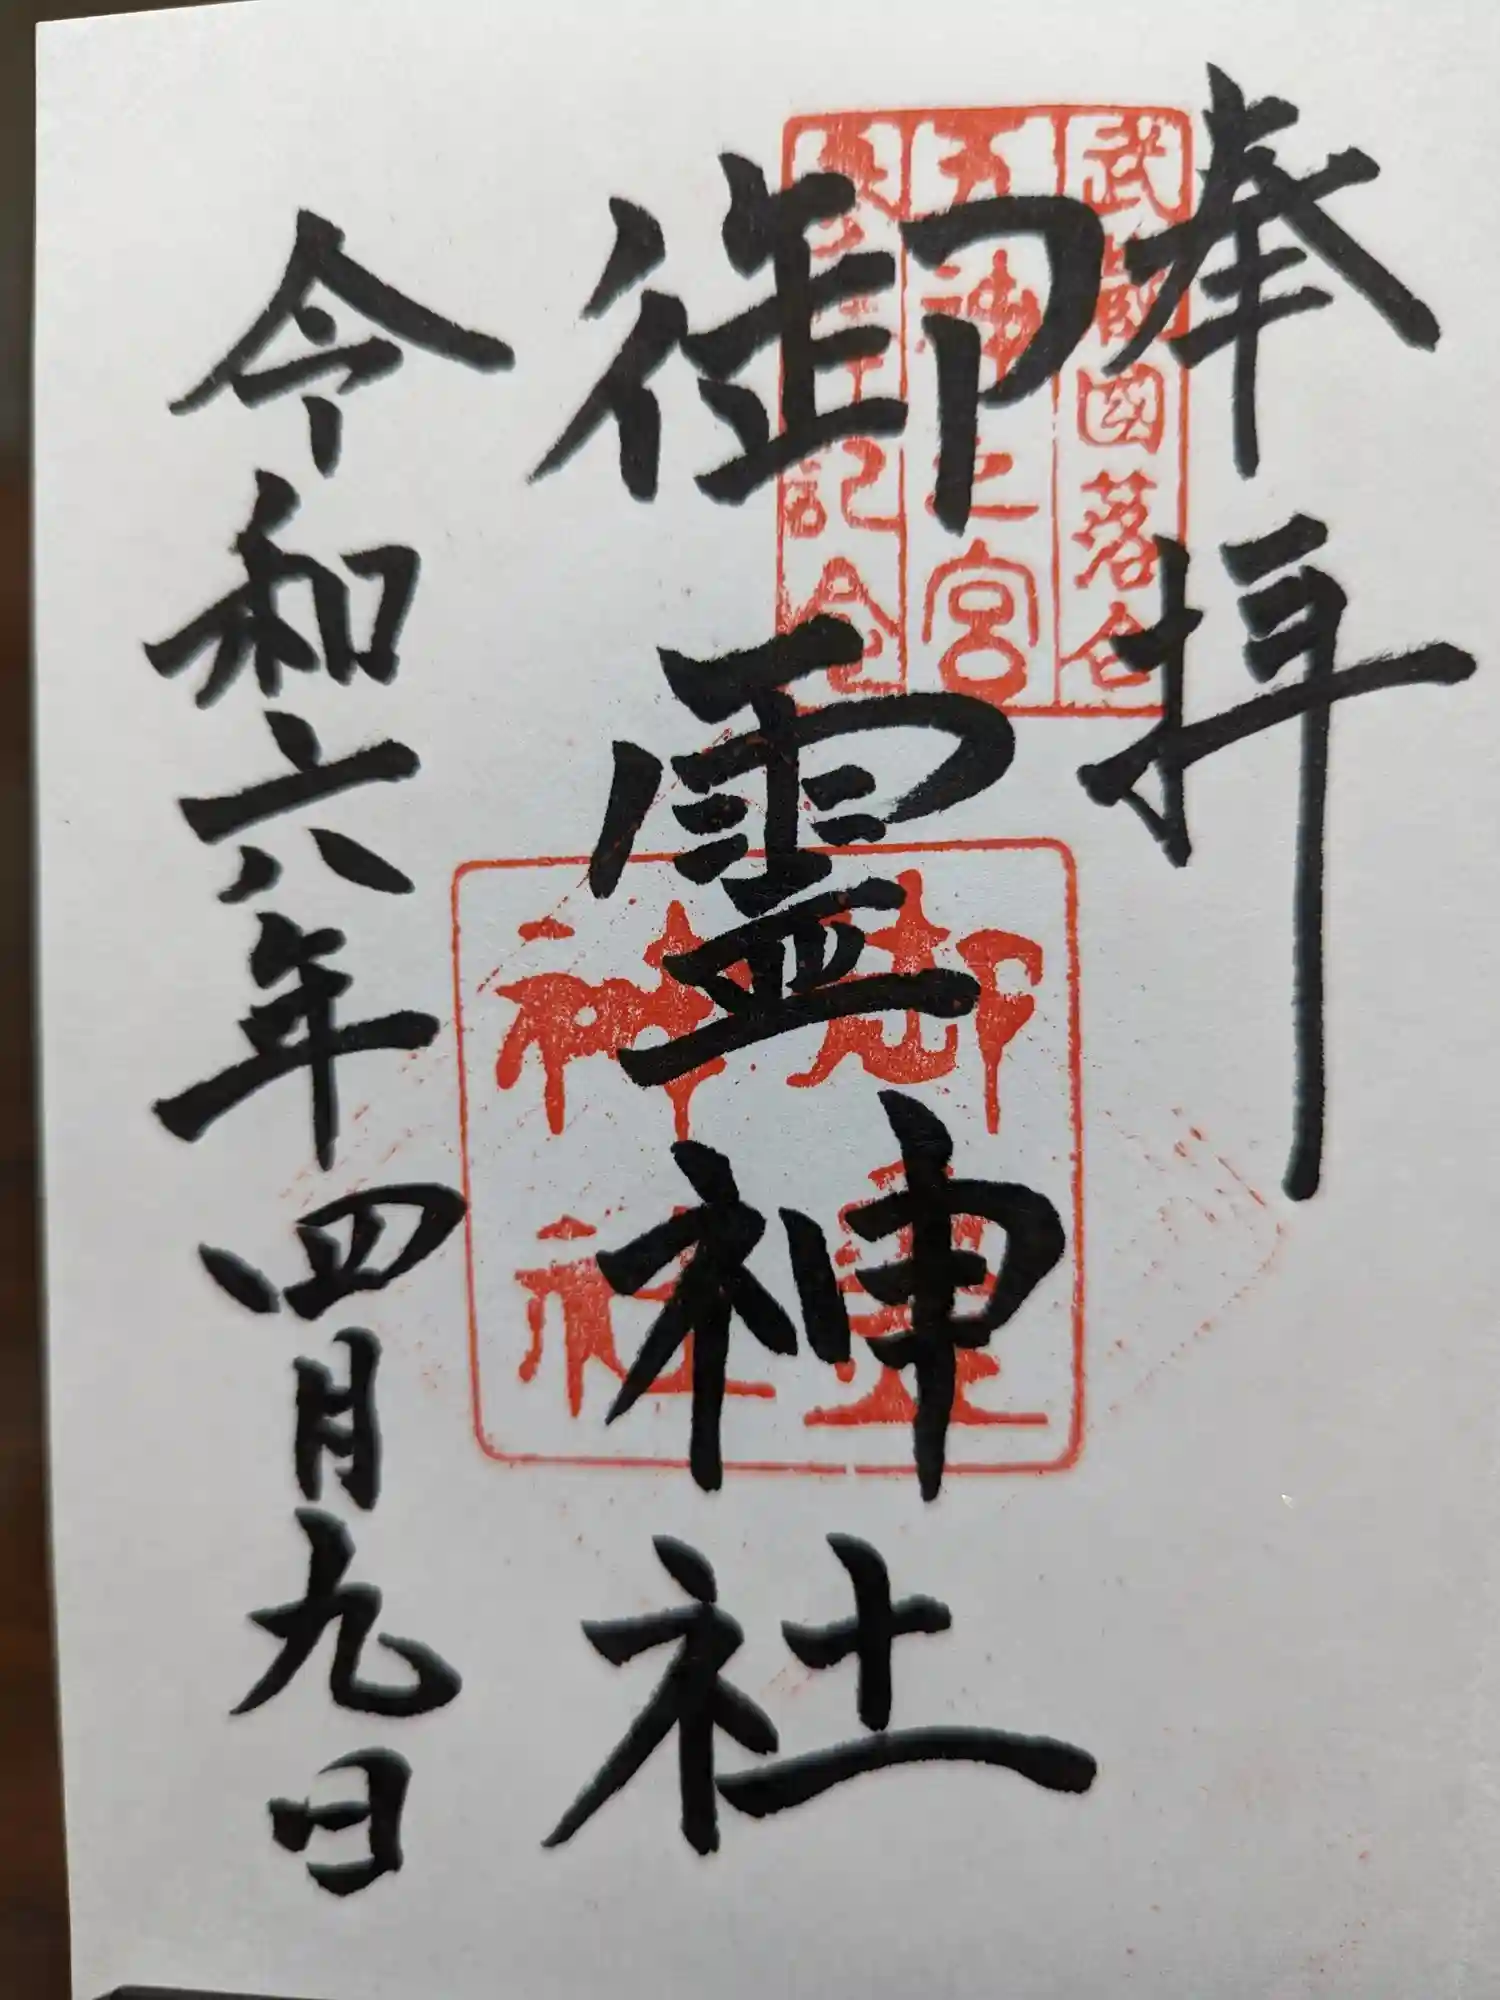 奉拝
武蔵國落合
五神之宮
記念
御霊神社
御霊
神社
令和六年四月九日